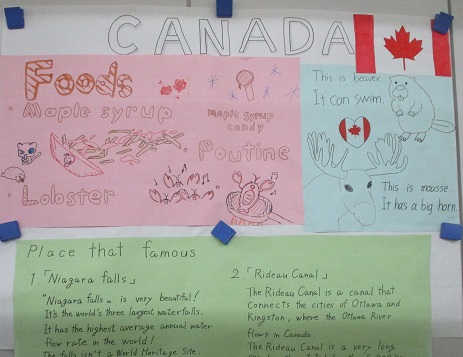 CANADA
Foods
Maple syrup
maple syrup
candy
Poutine
Lobster
This is beaver.
It can swim.
This is mousse.
It has a big horn.
Place that famous
1.「Niagara falls」
"Niagara falls" is very beautiful!
It's the world's three largest waterfalls.
It has the highest average annual water
flow rate in the world!
The falls isn't a World Heritage Site.
2「Rideau Canal」
The Rideau Canal is a canal that
connects the cities of Ottawa and
Kingston, where the Ottawa River
flows in Canada.
The Rideau Canal is a very long